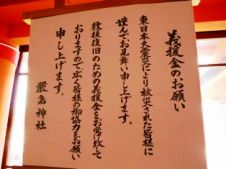 義援金のお願い
東日本大震災により被災された皆様に
謹んでお見舞い申し上げます。
救援復旧のための義援金をお受け致して
おりますので広く皆様の御協力をお願い
申し上げます。
厳島神社